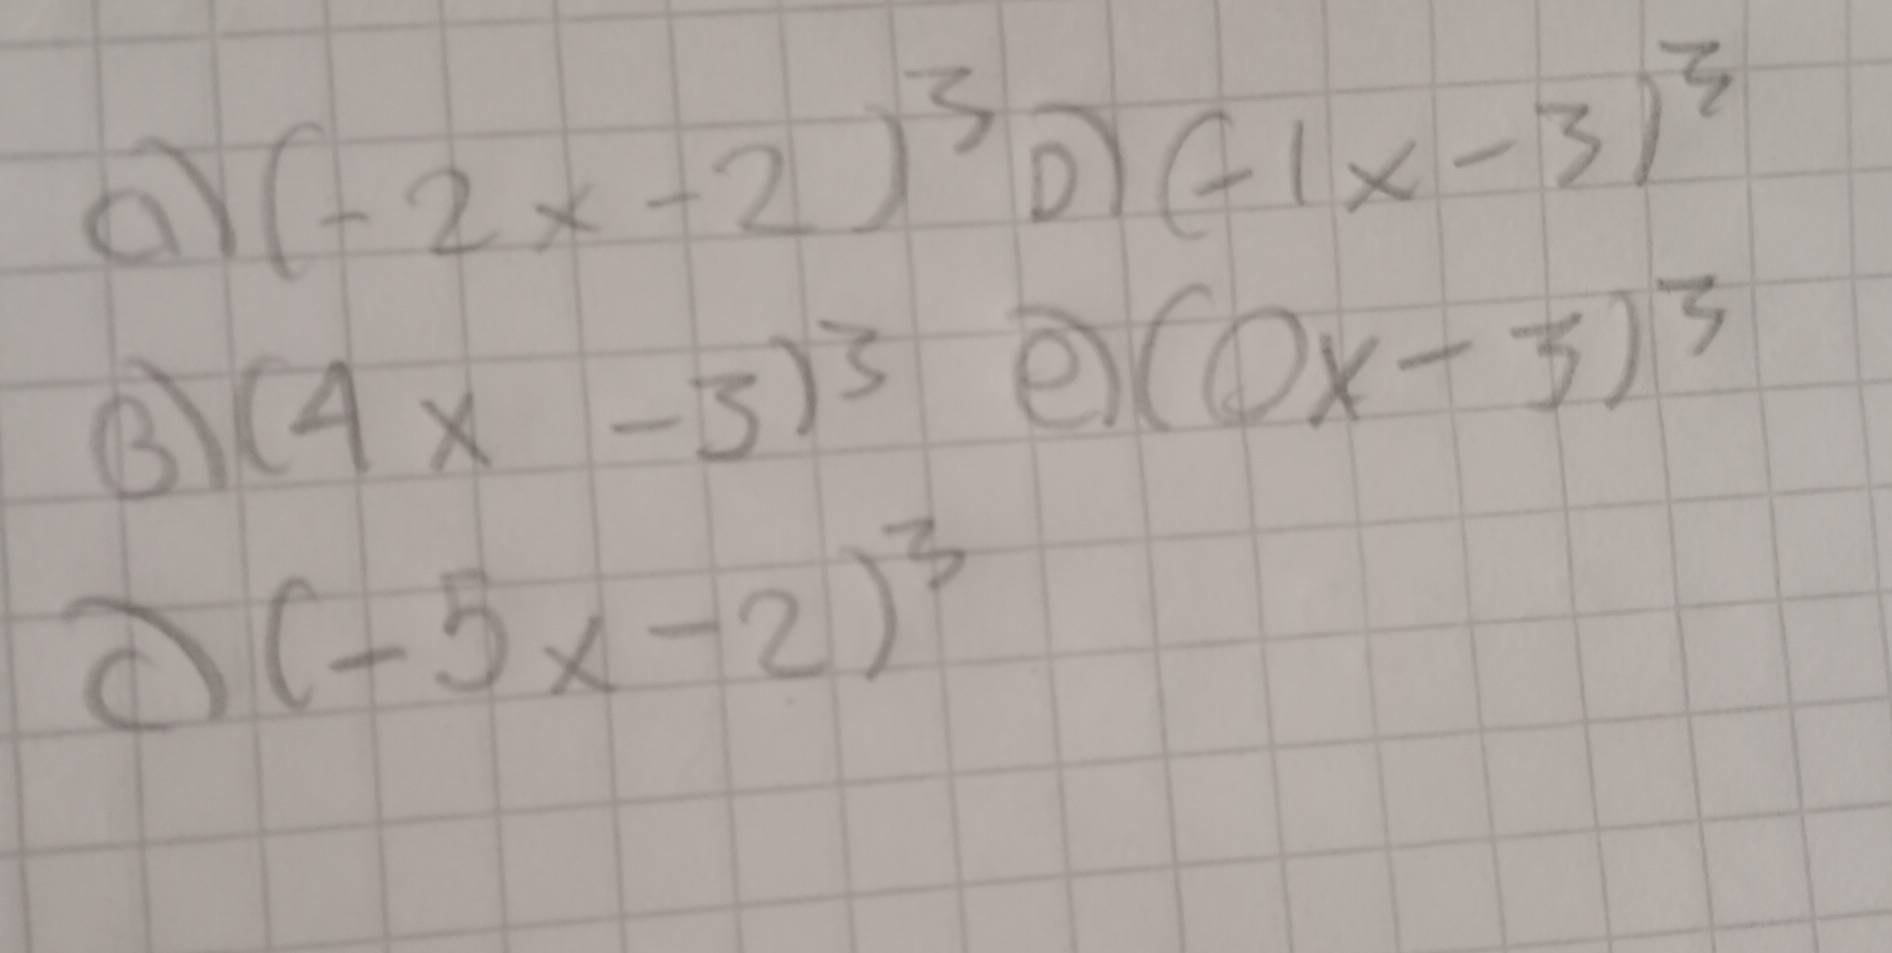 a) (-2x-2)³ D) (-1x-3)³
B) (4x -3)³ e) (0x-3)³
c) (-5x-2)³